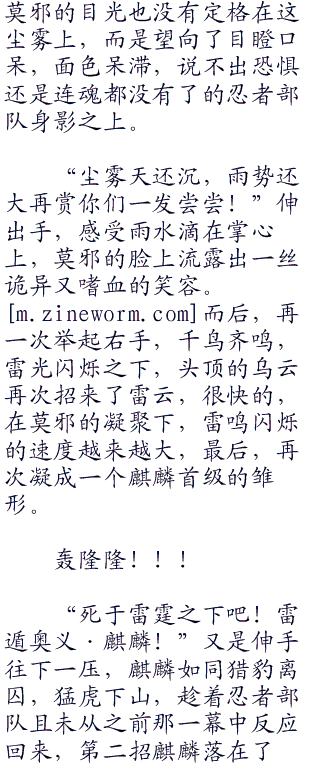 莫邪的目光也没有定格在这
尘雾上，而是望向了目瞪口
呆，面色呆滞，说不出恐惧
还是连魂都没有了的忍者部
队身影之上。
“尘雾天还沉，雨势还
大再赏你们一发尝尝！”伸
出手，感受雨水滴在掌心
上，莫邪的脸上流露出一丝
诡异又嗜血的笑容。
[m.zineworm.com]而后，再
一次举起右手，千鸟齐鸣，
雷光闪烁之下，头顶的乌云
再次招来了雷云，很快的，
在莫邪的凝聚下，雷鸣闪烁
的速度越来越大，最后，再
次凝成一个麒麟首级的雏
形。
轰隆隆！！！
“死于雷霆之下吧！雷
遁奥义·麒麟！”又是伸手
往下一压，麒麟如同猎豹离
囚，猛虎下山，趁着忍者部
队且未从之前那一幕中反应
回来，第二招麒麟落在了